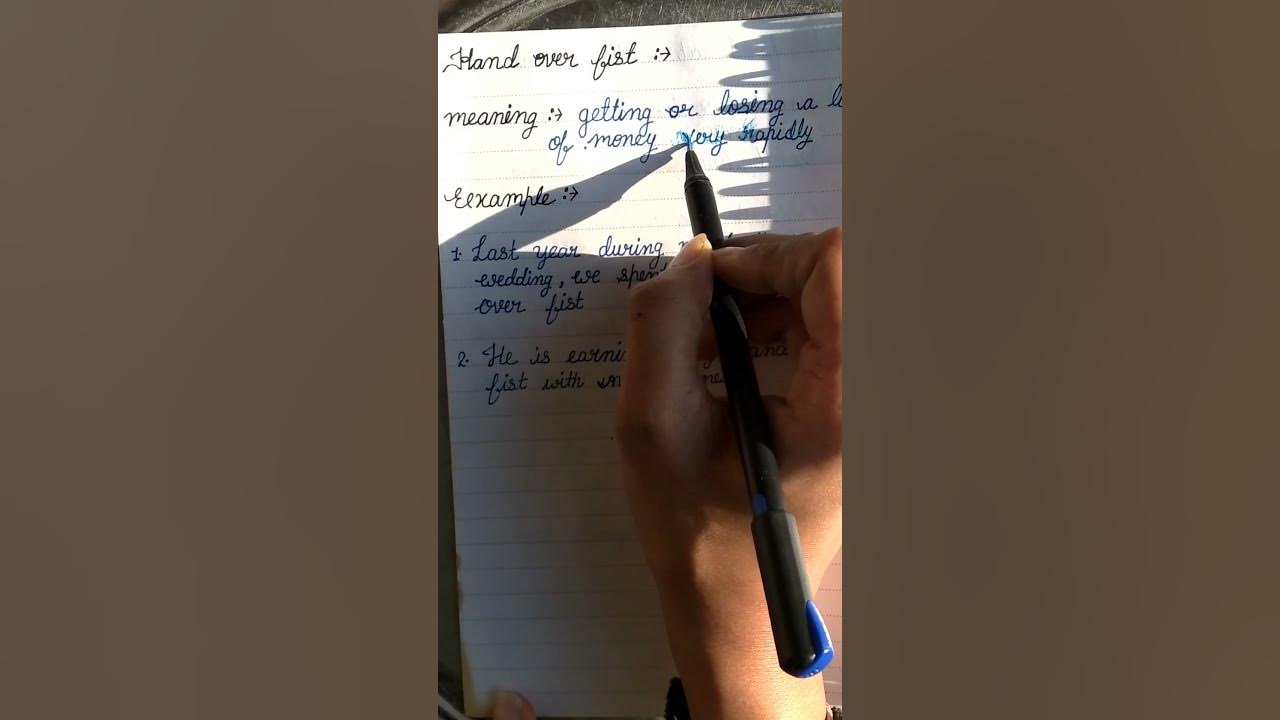 Hand over fist :→
meaning :→ getting or losing a
of money very rapidly
Eexample :→
1. Last year during
wedding, we
over fist
2. He is
fist with